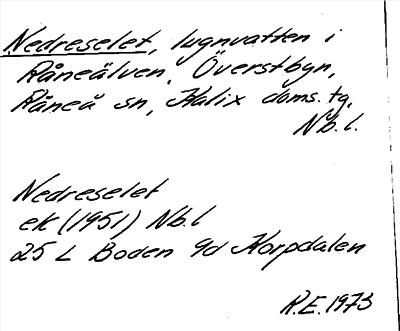 Nedreselet, lugnvatten i
Råneälven, Överstbyn,
Råneå sn, Kalix doms. tg,
Nb. l.
Nedreselet
ek (1951) Nb. l
25 L Boden 9d Korpdalen
R.E. 1973